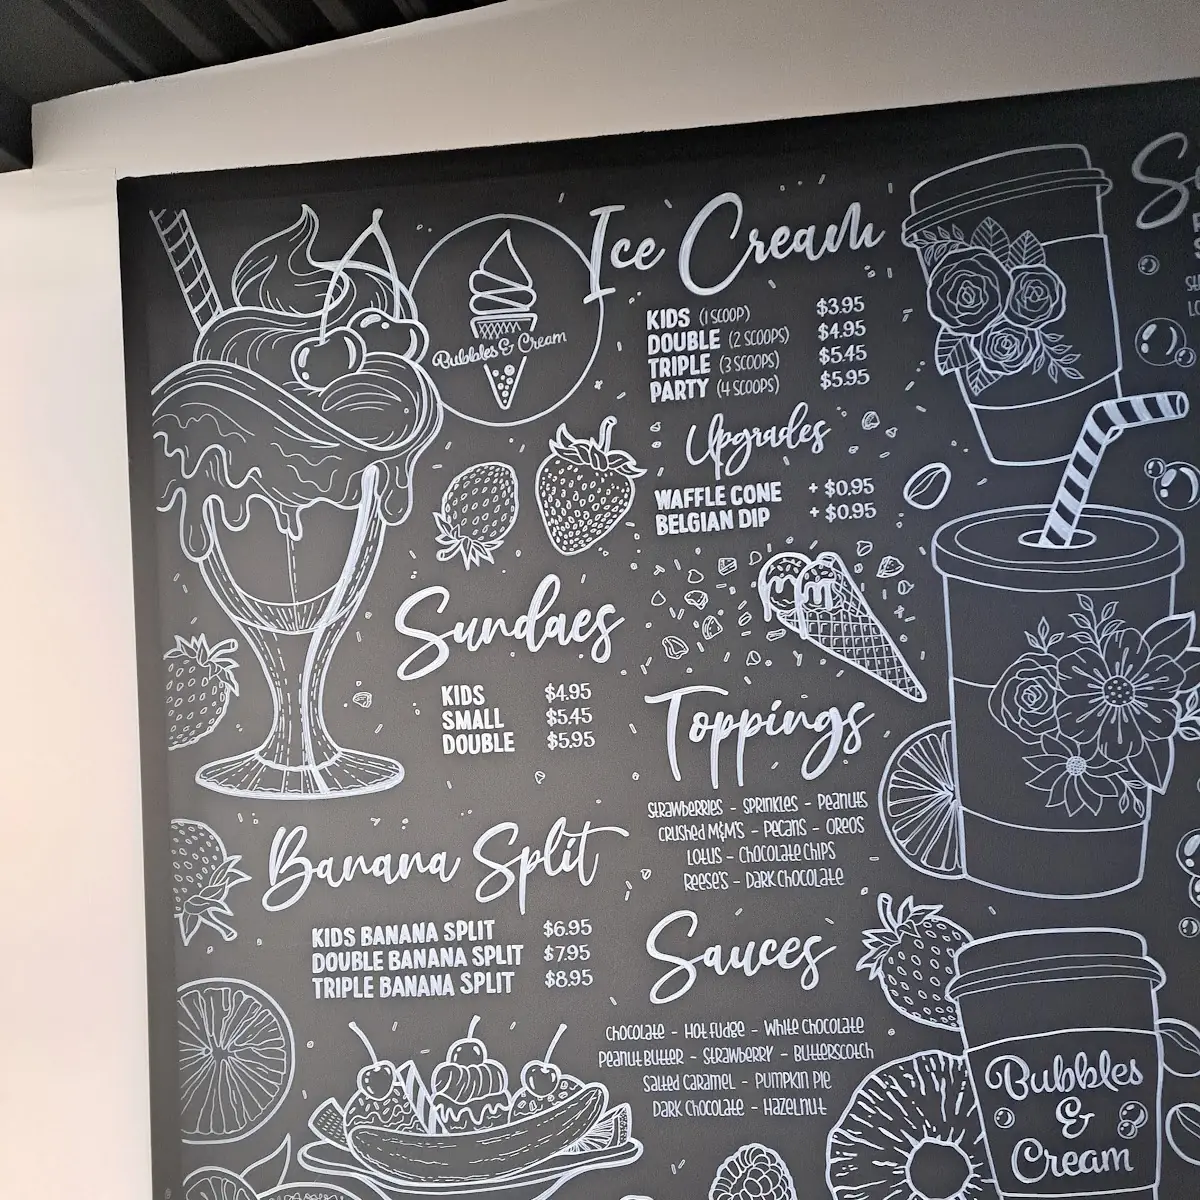 Bubbles & Cream
Ice Cream
KIDS (1 SCOOP) $3.95
DOUBLE (2 SCOOPS) $4.95
TRIPLE (3 SCOOPS) $5.45
PARTY (4 SCOOPS) $5.95
Upgrades
WAFFLE CONE + $0.95
BELGIAN DIP + $0.95
Sundaes
KIDS $4.95
SMALL $5.45
DOUBLE $5.95
Toppings
STRAWBERRIES - SPRINKLES - PEANUTS
CRUSHED M&M'S - PECANS - OREOS
LOTUS - CHOCOLATE CHIPS
REESE'S - DARK CHOCOLATE
Banana Split
KIDS BANANA SPLIT $6.95
DOUBLE BANANA SPLIT $7.95
TRIPLE BANANA SPLIT $8.95
Sauces
CHOCOLATE - HOT FUDGE - WHITE CHOCOLATE
PEANUT BUTTER - STRAWBERRY - BUTTERSCOTCH
SALTED CARAMEL - PUMPKIN PIE
DARK CHOCOLATE - HAZELNUT
Bubbles
&
Cream